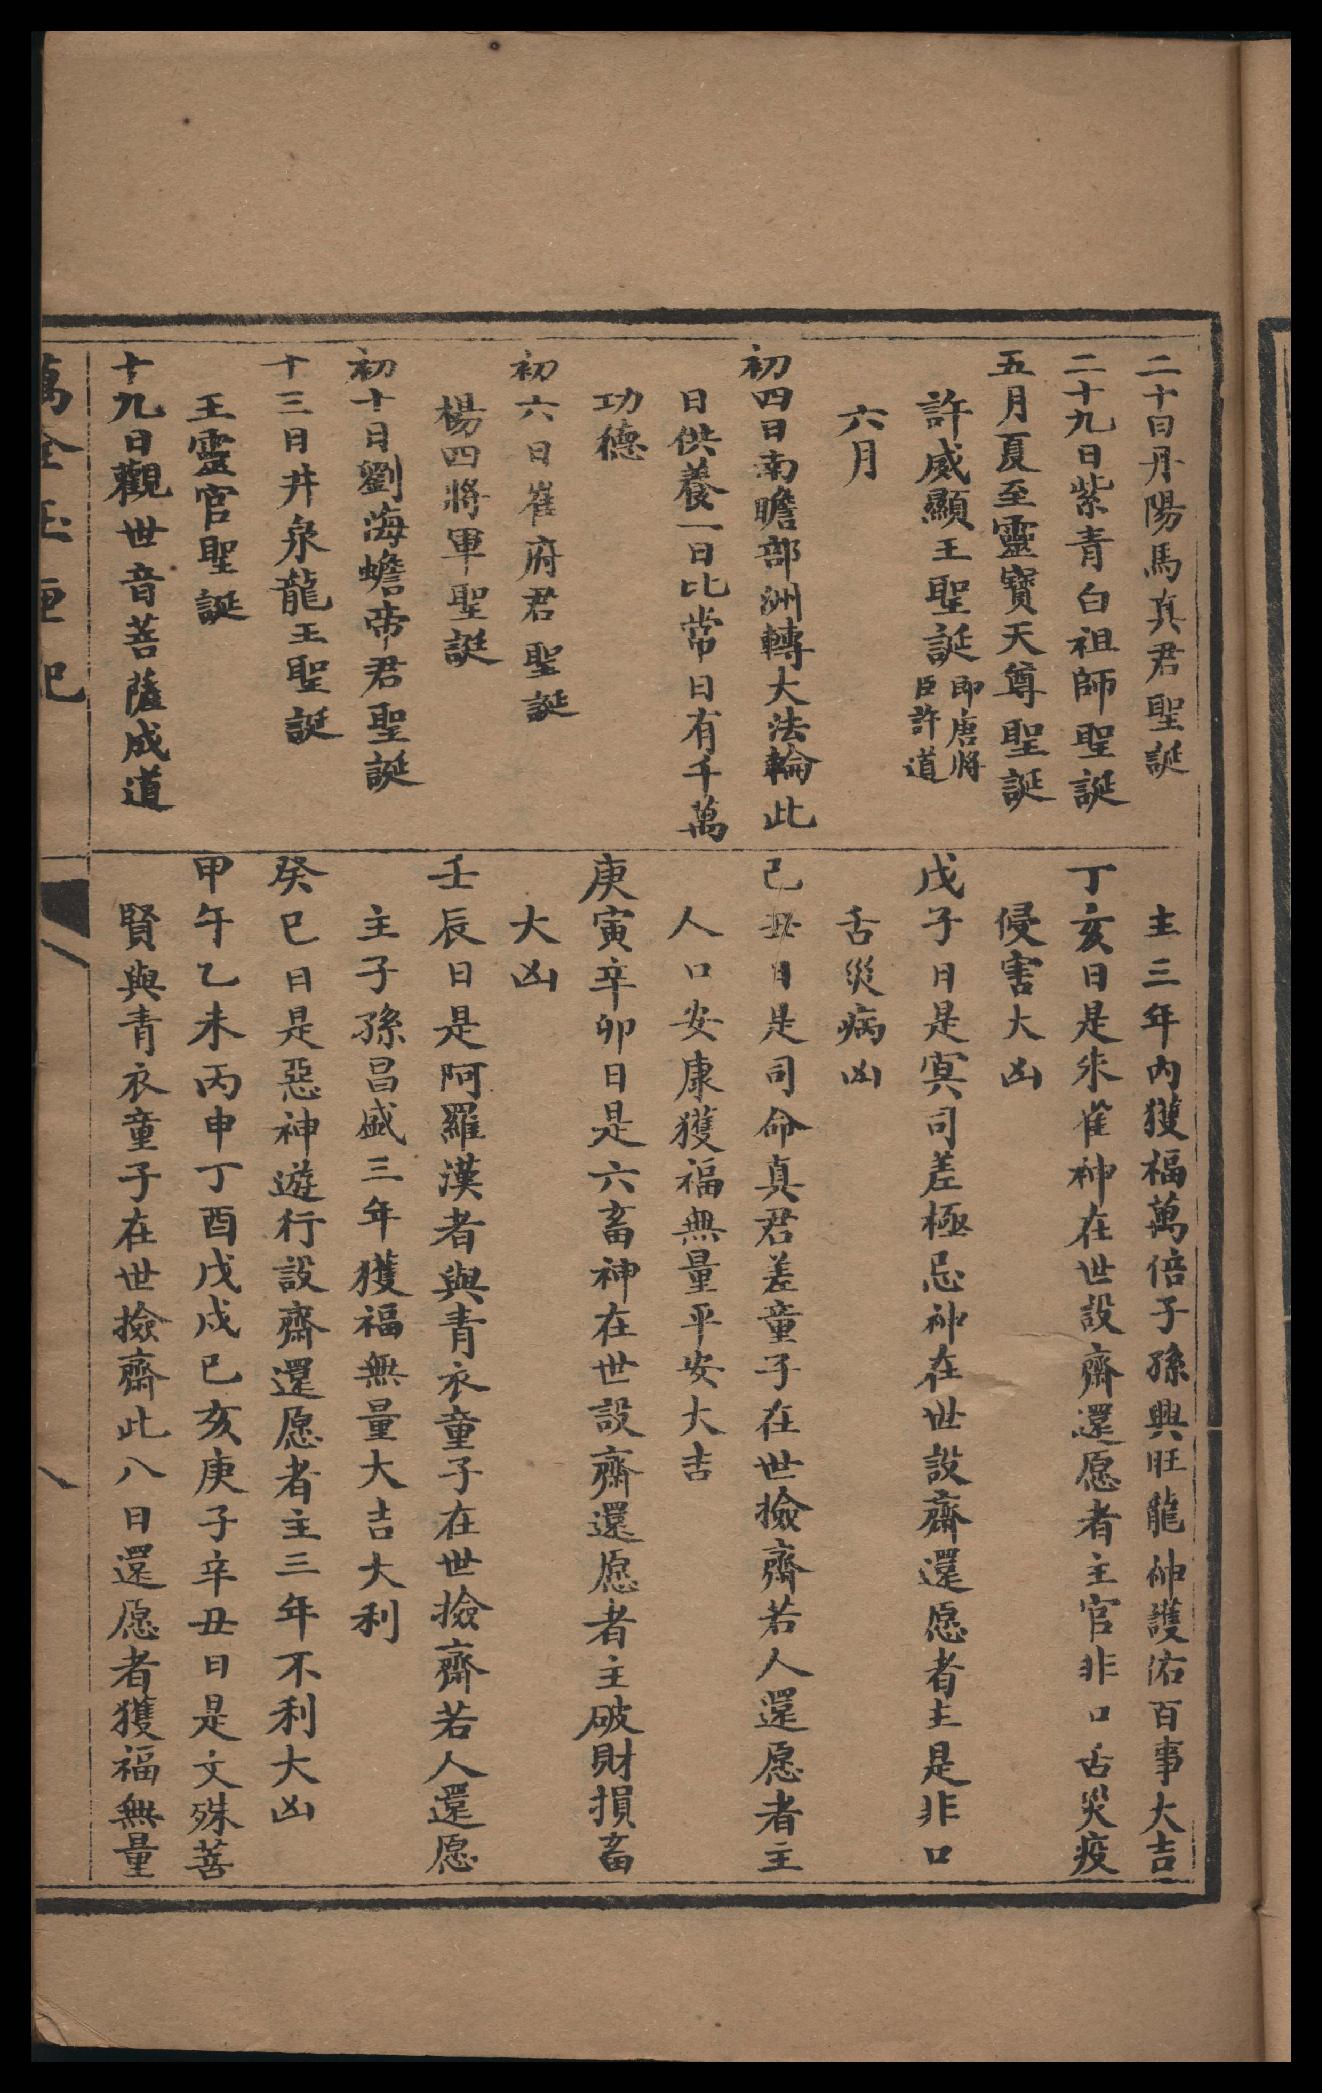 二十日丹陽馬真君聖誕
二十九日紫青白祖師聖誕
五月夏至靈寶天尊聖誕
許威顯王聖誕即唐將
臣許道
六月
初四日南瞻部洲轉大法輪此
日供養一日比常日有千萬
功德
初六日崔府君聖誕
楊四將軍聖誕
初十日劉海蟾帝君聖誕
十三日井泉龍王聖誕
王靈官聖誕
十九日觀世音菩薩成道
主三年內獲福萬倍子孫興旺龍神護佑百事大吉
丁亥日是朱雀神在世設齋還愿者主官非口舌災疫
侵害大凶
戊子日是冥司差極忌神在世設齋還愿者主是非口
舌災病凶
己丑日是司命真君差童子在世撿齋若人還愿者主
人口安康獲福無量平安大吉
庚寅辛卯日是六畜神在世設齋還愿者主破財損畜
大凶
壬辰日是阿羅漢者與青衣童子在世撿齋若人還愿
主子孫昌盛三年獲福無量大吉大利
癸巳日是惡神遊行設齋還愿者主三年不利大凶
甲午乙未丙申丁酉戊戌己亥庚子辛丑日是文殊菩
賢與青衣童子在世撿齋此八日還愿者獲福無量
萬全玉匣記